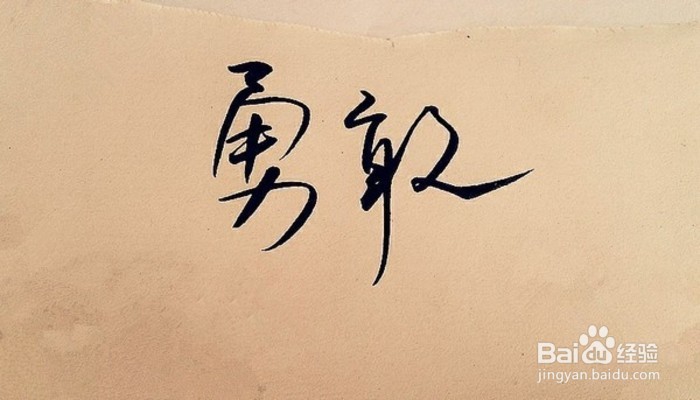 勇敢
Bai du 经验
jingyan.baidu.com